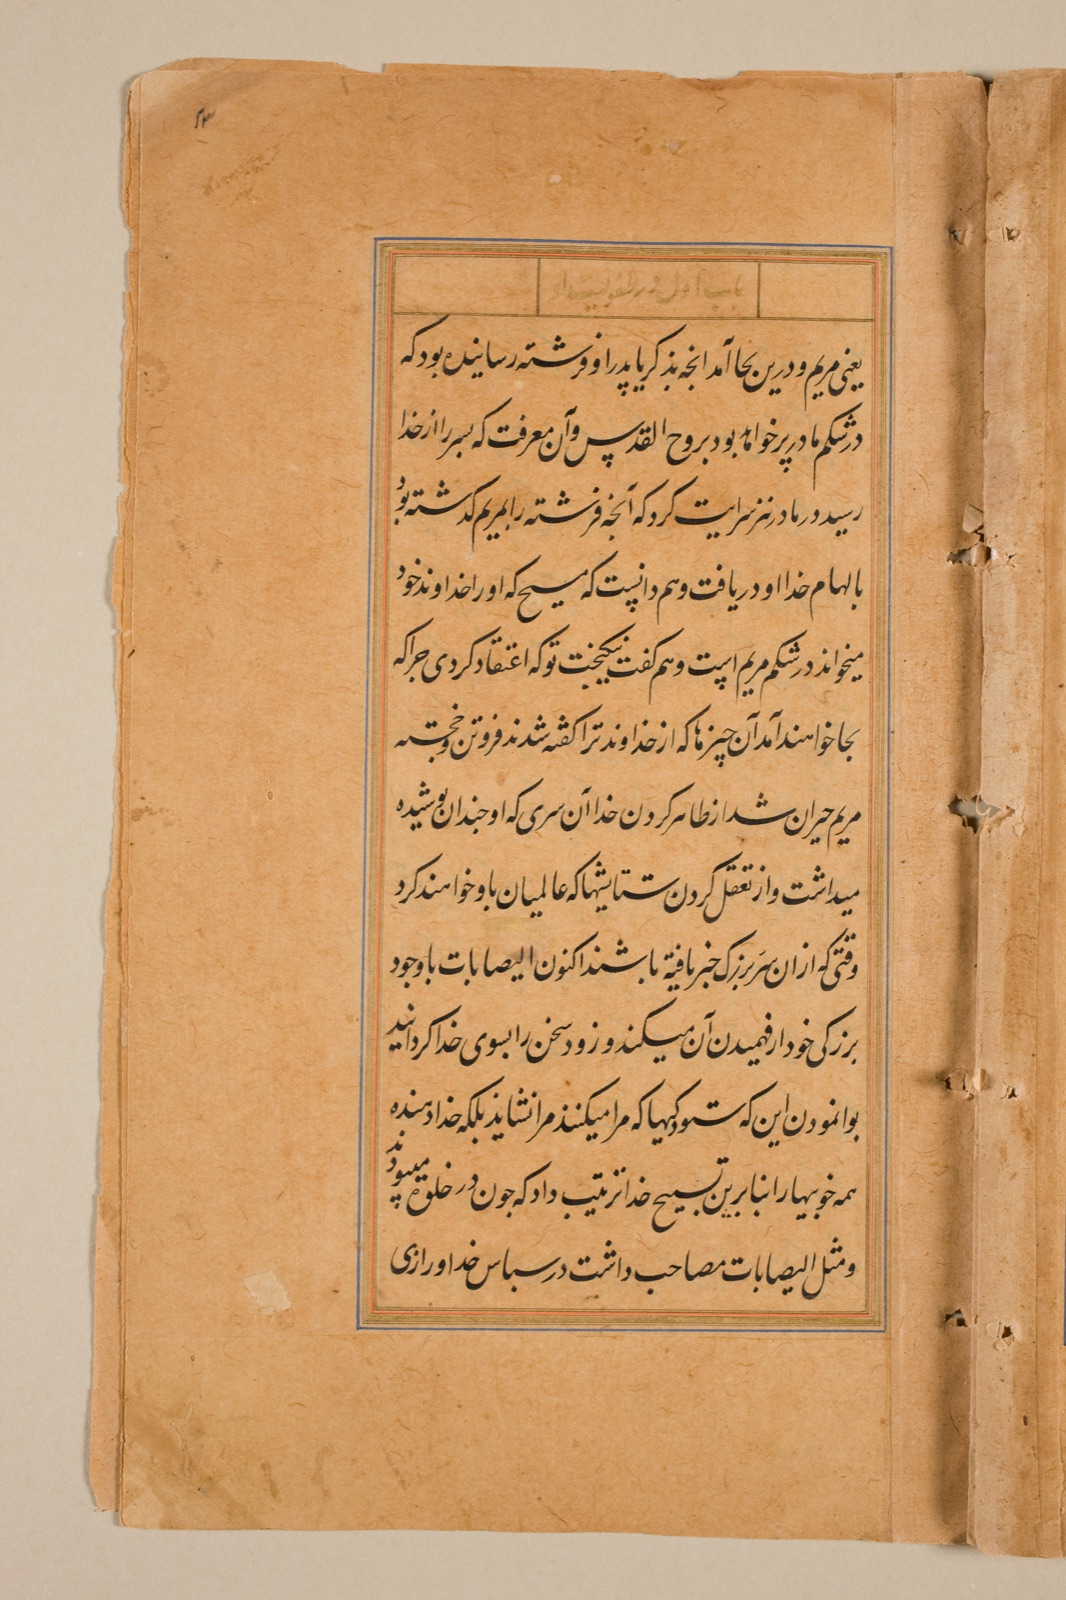 ۲۳
باب اول در طفولیت او
یعنی مریم و درین بجا آمد انچه بذکریا پدر او فرشته رساینده بود که
در شکم مادر پر خواهد بود بروح القدس و آن معرفت که بسر را از خدا
رسید در مادر نیز سرایت کرد که آنچه فرشته را بمریم کذشته بود
بالهام خدا او دریافت و هم دانست که مسیح که او را خداوند خود
میخواند در شکم مریم است و هم کفت نیکبخت تو که اعتقاد کردی جرا که
بجا خواهند آمد آن چیزها که از خداوند ترا کفته شدند فروتن و خجسته
مریم حیران شد از ظاهر کردن خدا آن سری که او جندان پوشیده
میداشت و از تعقل کردن ستایشها که عالمیان باو خواهند کرد
وقتی که ازان سرّ بزرک خبر یافته باشند اکنون الیصابات با وجود
بزرکی خود از فهمیدن آن میکند و زود سخن را بسوی خدا کردانید
بوانمودن این که ستودکیها که مرا میکنند مرا نشاید بلکه خدا دهنده
همه خوبیها را بنابرین تسبیح خدا ترتیب داد که جون در خلوة میبودند
و مثل الیصابات مصاحب داشت در سباس خدا و رازی